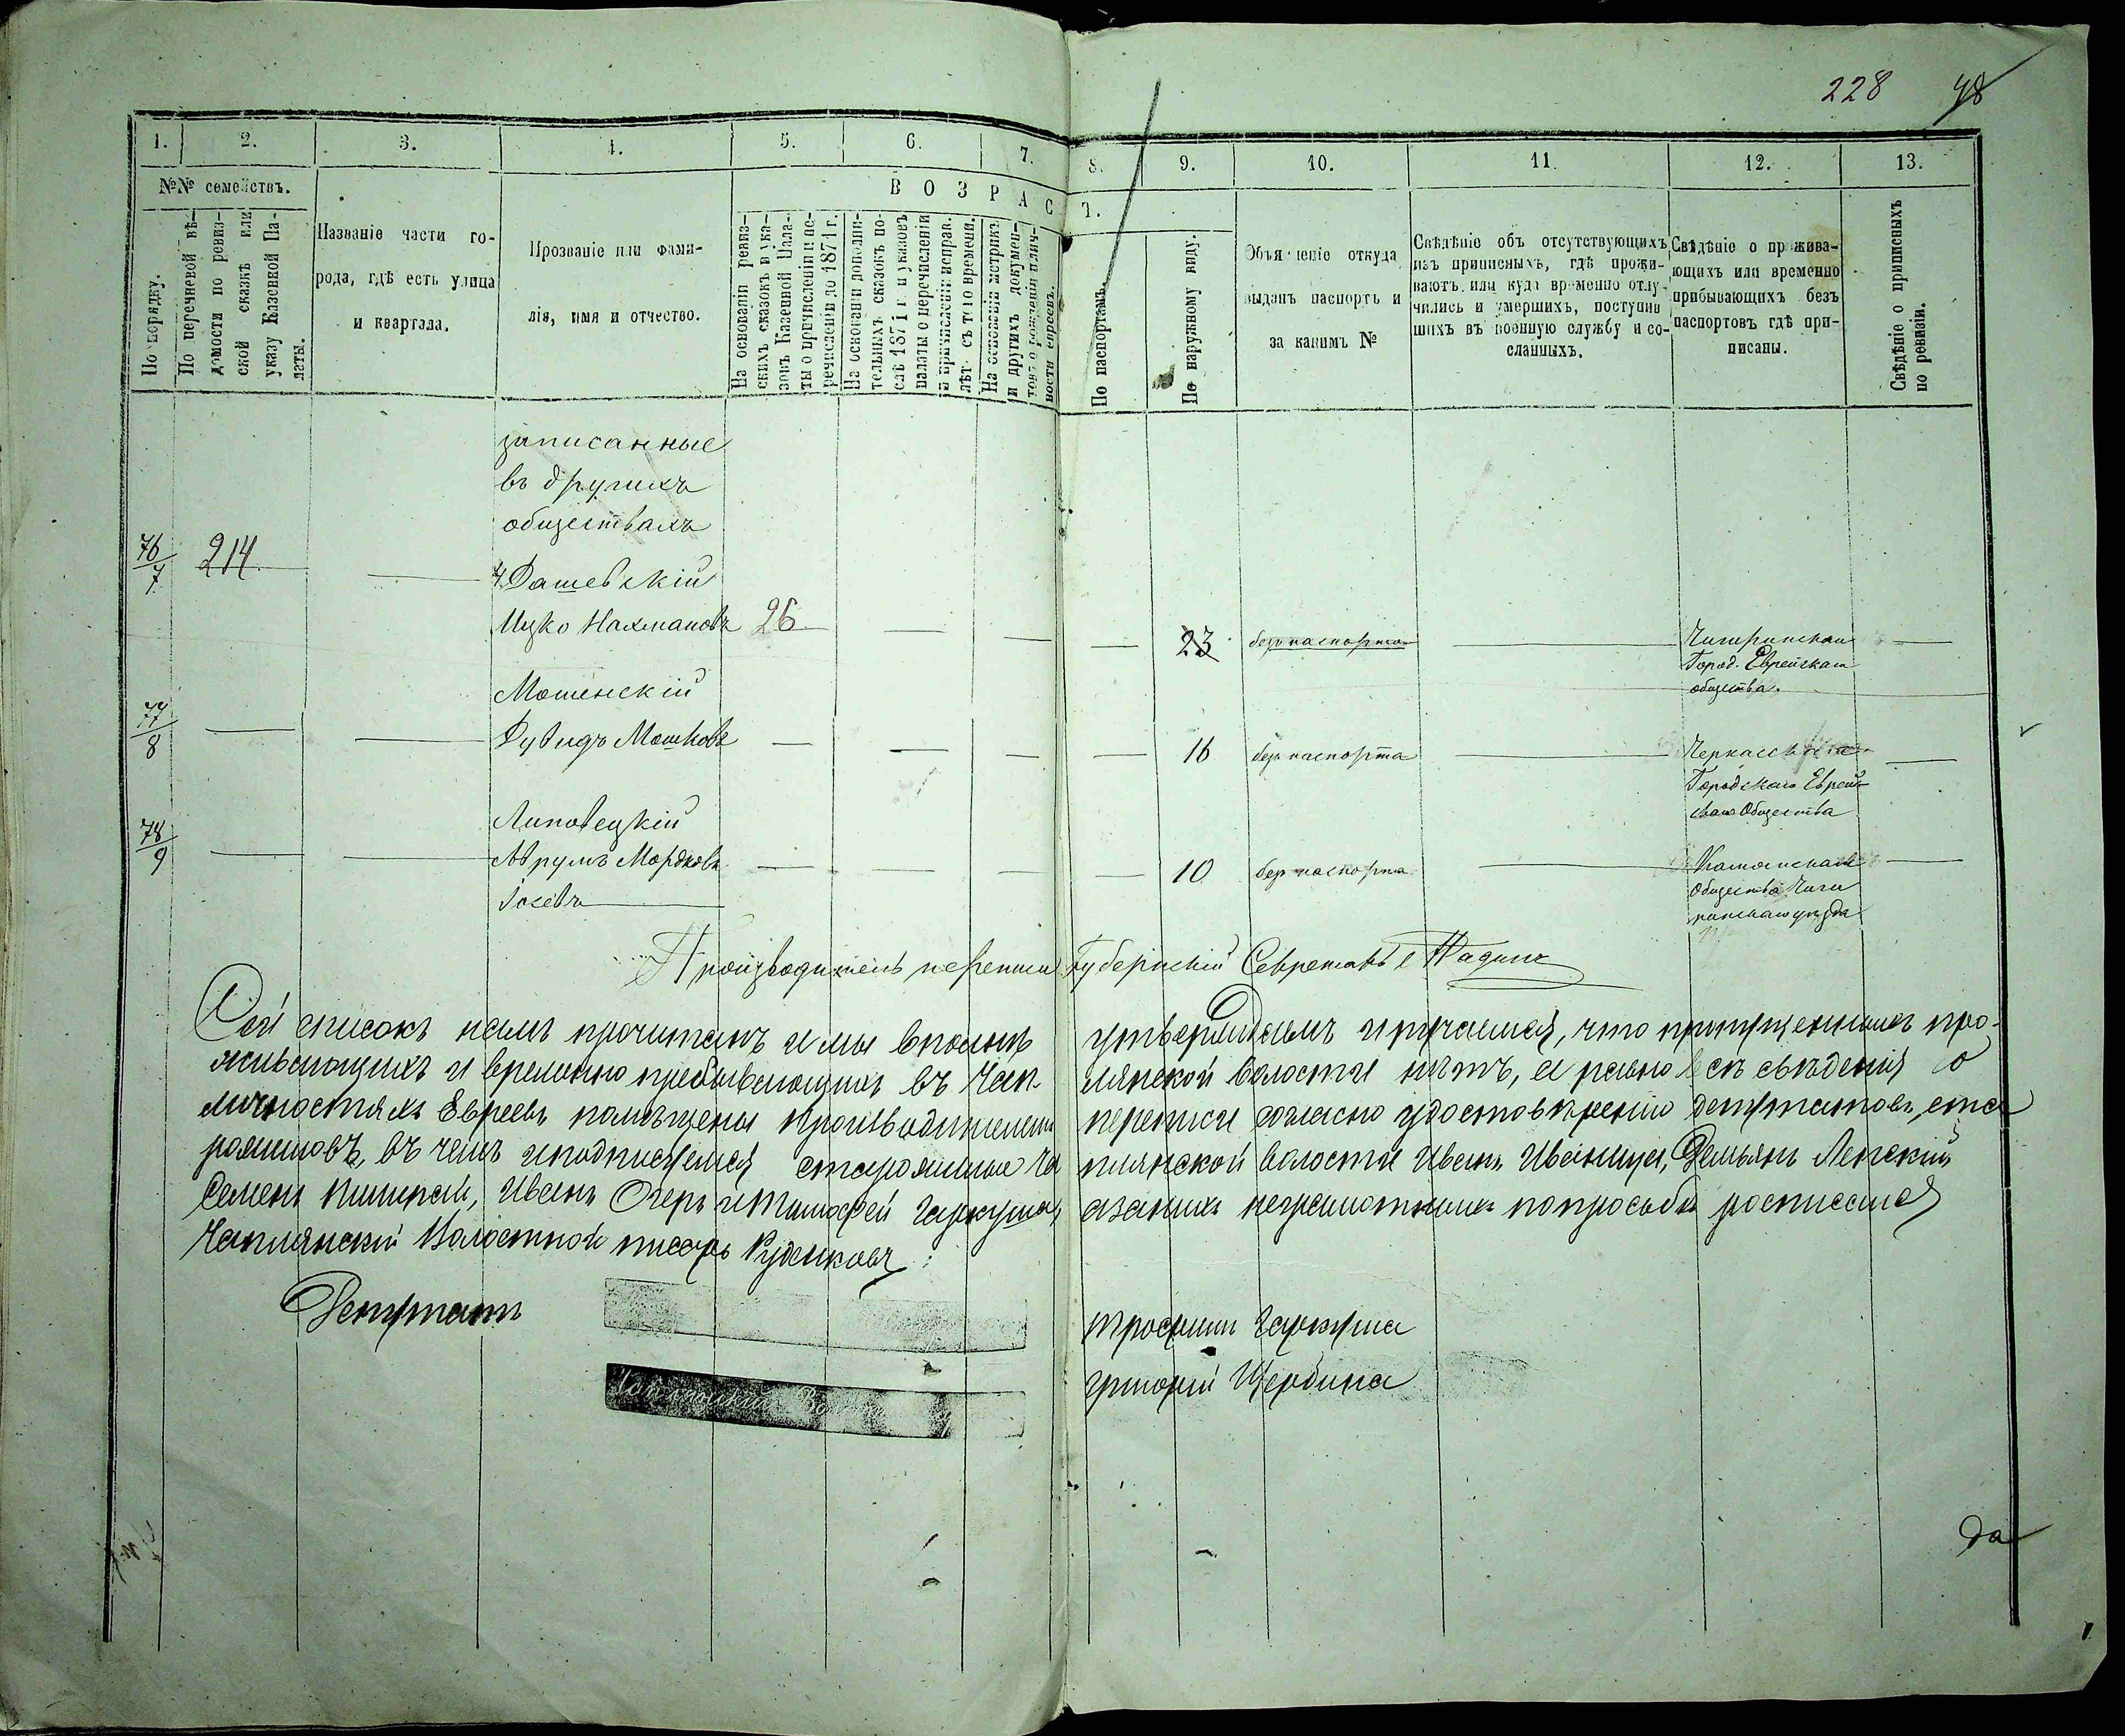 228 48
1. 2. 3. 4. 5. 6. 7. 8. 9. 10. 11. 12. 13.
№№ семействъ.
По порядку.
По перечневой вѣ-
домости по ревиз-
ской сказкѣ или
указу Казенной Па-
латы.
Названіе части го-
рода, гдѣ есть улица
и квартала.
Прозваніе или фами-
лія, имя и отчество.
ВОЗРАСТ.
На основаніи ревиз-
скихъ сказокъ и ука-
зовъ Казенной Пала-
ты о причисленіи и пе-
речисленіи до 1874 г.
На основаніи дополни-
тельныхъ сказокъ по-
слѣ 1874 г. и указовъ
палаты о перечисленіи
и причисленіи исправ.
лѣт. съ того времени.
На основаніи метрикъ
и другихъ докумен-
товъ о рожденіи личн-
ности евреевъ.
По паспортамъ.
По наружному виду.
Объясненіе откуда
выданъ паспортъ и
за какимъ №
Свѣдѣніе объ отсутствующихъ
изъ приписныхъ, гдѣ прожи-
ваютъ или куда временно отлу-
чились и умершихъ, поступив
шихъ въ военную службу и со-
сланныхъ.
Свѣдѣніе о прожива-
ющихъ или временно
прибывающихъ безъ
паспортовъ гдѣ при-
писаны.
Свѣдѣніе о приписныхъ
по ревизіи.
записанные
въ другихъ
обществахъ
76/7 214 Дашевскій
Ицко Нахмановъ 26 23 безъ паспорта Чигиринскаго
Город. Еврейскаго
общества.
Мошенскій
77/8 Дувидъ Мошковъ 16 безъ паспорта Черкасскаго
Городскаго Еврей-
скаго Общества
Липовецкій
78/9 Аврумъ Мордковъ 10 безъ паспорта
Іосевъ Общества Чиги
ринскаго уѣзда
Производитель переписи Губернскій Секретарь
Сей списокъ намъ прочитанъ и мы вполнѣ утверждаемъ и ручаемся, что пропущенныхъ про-
живающихъ и временно пребывающихъ въ Чап лянской волости нѣтъ, и равно всѣ свѣденія о
личностяхъ Евреевъ помѣщены производителемъ переписи согласно удостовѣренію депутатовъ, ста
рожиловъ, въ чемъ и подписуемся старожилы Ча плянской волости Иванъ Иваница, Демьянъ Ленскій
Семенъ Иванъ Огерь и Тимофей Гаркуша, а за нихъ неграмотныхъ по просьбѣ росписался
Чаплянскій Волостной писарь Руденковъ
Депутатъ Трофимъ Гаркуша
Григорій Щербина
да